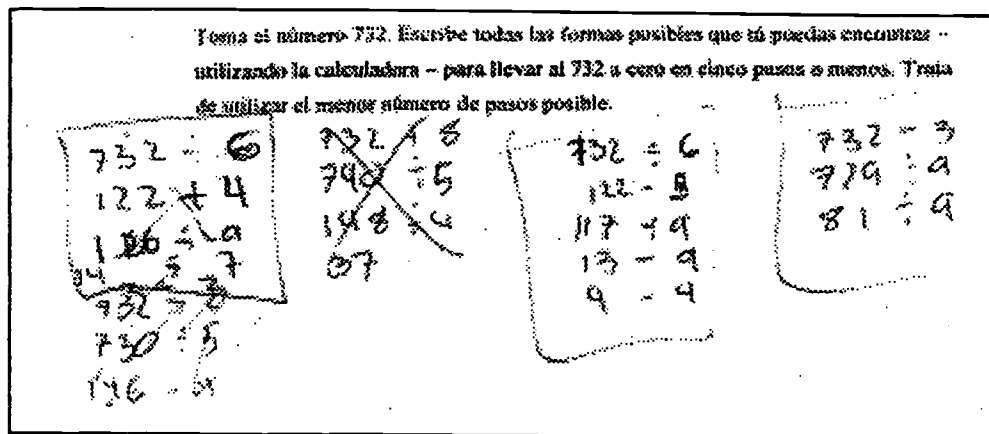 Toma el número 732. Escribe todas las formas posibles que tú puedas encontrar –
utilizando la calculadora – para llevar al 732 a cero en cinco pasos o menos. Trata
de utilizar el menor número de pasos posible.
732 ÷ 6
122 + 4
732 + 8
740 ÷ 5
148 ÷ 4
37
732 ÷ 6
122 - 5
117 ÷ 9
13 - 9
4 - 4
732 - 3
729 ÷ 9
81 ÷ 9
730 ÷ 5
146